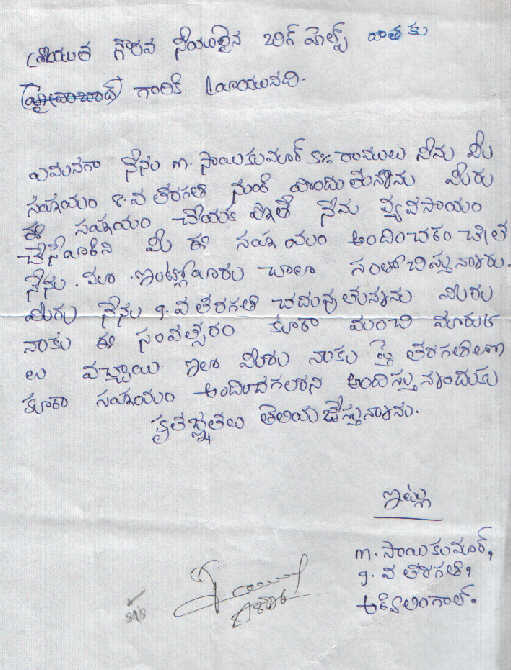 శ్రీయుత గౌరవ నీయులైన బిగ్ హెల్ప్ దాతకు
(హైదరాబాద్) గారికి వ్రాయునది.
ఏమనగా నేను m. సాయికుమార్ S/o రాములు నేను మీ
సహాయం 8. వ తరగతి నుండి పొందుతున్నాను మీరు
ఈ సహాయం చేయక పోతే నేను వ్యవసాయం
చేసేవాడిని మీ ఈ సహాయం అందించడం వల్ల
నేను. మా ఇంట్లోవారు చాలా సంతోషిస్తున్నారు.
మీరు నేను 9. వ తరగతి చదువుతున్నాను మీరు
నాకు ఈ సంవత్సరం కూడా మంచి మార్కు
లు వచ్చాయి ఇలా మీరు నాకు పై తరగతులలో
కూడా సహాయం అందించగలరని అందిస్తునందుకు
కృతజ్ఞతలు తెలియజేస్తున్నాను.
ఇట్లు
m. సాయికుమార్,
9. వ తరగతి,
అడ్విలింగాల.